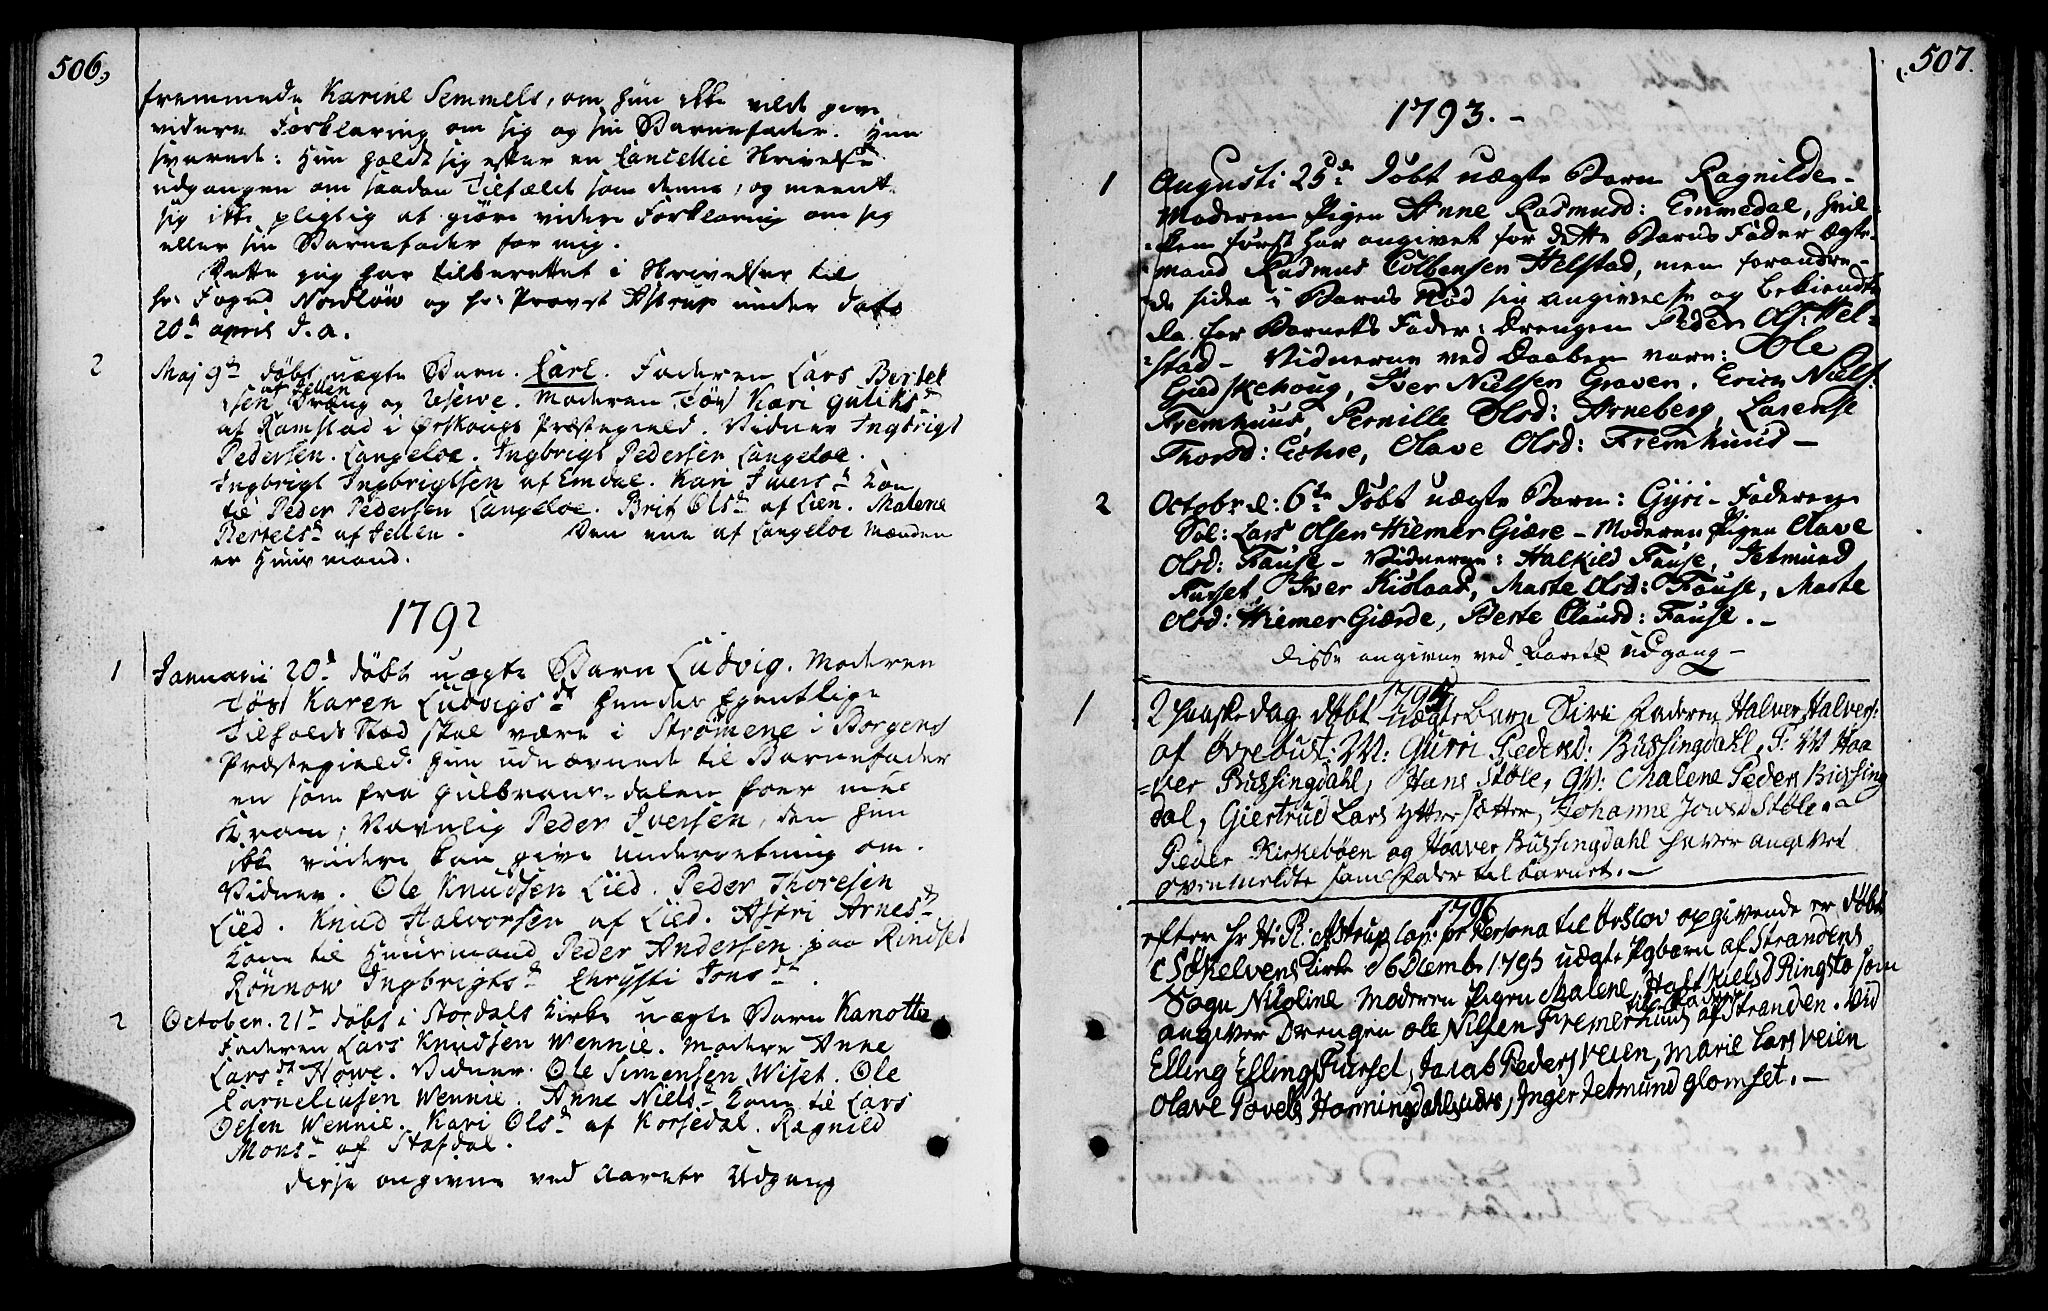 506,
fremmede Karine Semmels, om hun ikke vilde give
videre Forklaring om sig og sin Barnefader. Hun
svarede: Hun holdt sig efter en Cancellie Skrivelse
udgangen om saadan Tilfælde som denne, og meente
sig ikke pligtig at giøre videre Forklaring om sig
eller sin Barnefader for mig.
Dette jeg har tilberettet i Skrivelser til
hr: Foged Nordløw og hr: Provst Astrup under Dato
20de april d. a.
2 Maj 9de døbt uægte Barn. Carl. Faderen Lars Bertel
sen af Jellen Dreng og reserve. Moderen Tøs Kari Guliksd
af Ramstad i Ørskougs Præstegield. Vidner Ingbrigt
Pedersen Langeloe. Ingbrigt Pedersen Langeloe.
Ingbrigt Ingbrigtsen af Emdal. Kari Iversd Kone
til Peder Pedersen Langeloe. Brit Olsd af Lien. Malene
Bertelsd af Jellen. Den ene af Langeloe Mænden
er Huusmand.
1792
1 Januarii 20de døbt uægte Barn Ludvig. Moderen
Tøs Karen Ludvigsd hendes Egentlige
Tilholds Stad skal være i Strømene i Borgens
Præstegield. Hun udnævnede til Barnefader
en som fra Gulbransdalen foer med
Kram, Navnlig Peder Iversen, den hun
ikke videre kan give underretning om.
Vidner. Ole Knudsen Lied. Peder Thoresen
Lied. Knud Halvorsen af Lied. Astri Arnesd
Kone til Huusmand Peder Andersen paa Rindset
Rønnow Ingbrigtsd Chrysti Jonsd.
2 October. 21de døbt i Stordals Kirke uægte Barn Kanotte
Faderen Lars Knudsen Wennie. Modere Anne
Larsd Howe. Vidner. Ole Simensen Wiset. Ole
Corneliusen Wennie. Anne Nielsd Kone til Lars
Olsen Wennie. Kari Olsd af Korsedal. Ragnild
Monsd af Stordal.
disse angivne ved Aarets Udgang
507.
1793.-
1 Augusti 25de Døbt uægte Barn Ragnilde-
Moderen Pigen Anne Rasmusd: Emmedal, hvil-
-ken først har angivet for dette Barns Fader Ægte-
mand Rasmus Colbensen Helstad, men forandre-
de siden i Barns Nød sin angivelse og bekiendte
da for Barnets Fader: Drengen Peder Ols: Hel-
-stad - Vidnerne ved Daaben vare: Ole
Gudskehoug, Iver Nielsen Graven, Erich Niels:
Fremhuus, Pernille Olsd: Arneberg, Lorense
Thorsd: Eohre, Olave Olsd: Fremhuus -
2 Octobr d: 6te Døbt uægte Barn: Gyri - Faderen
Sol: Lars Olsen Hiemer Giære - Moderen Pigen Olave
Olsd: Fause - Vidnerne: Halkild Fause, Jetmund
Furset, Iver Kislaad, Marte Olsd: Fause, Marte
Olsd: Hiemer Giærde, Berte Clausd: Fause.-
disse angivne ved Aarets Udgang -
1795
1 2 Paaskedag døbt uægte barn Siri Faderen Halver Halvers:
af Øvrebust: M: Gurri Pedersd: Bussingdahl, T: W Haa
=ver Bussingdahl, Hans Støle, Qv: Malene Peders Bussing
dal, Giertrud Lars Yttresætter, Johanne Jonsd Støle
Peder Kirkebøen og Haaver Bussingdahl haver angivet
ovenmeldte som Fader til barnet.-
1796
efter hr H: R: Astrup cap: pr Persona til Ørskov opgivende er døbt
i Søkelvens Kirke d 6 Decmb: 1795 uægte Pgbarn af Strandens
Sogn Nicoline Moderen Pigen Malene Hals Nielsd Ringstø som
til Fader
angiver Drengen Ole Nilsen Fremerhuus af Stranden. Vid
Elling Ellings Furset, Jacab Peders Veien, Marie Lars Veien
Olave Povels Honningdahlsnes, Inger Jetmund Glomset.-